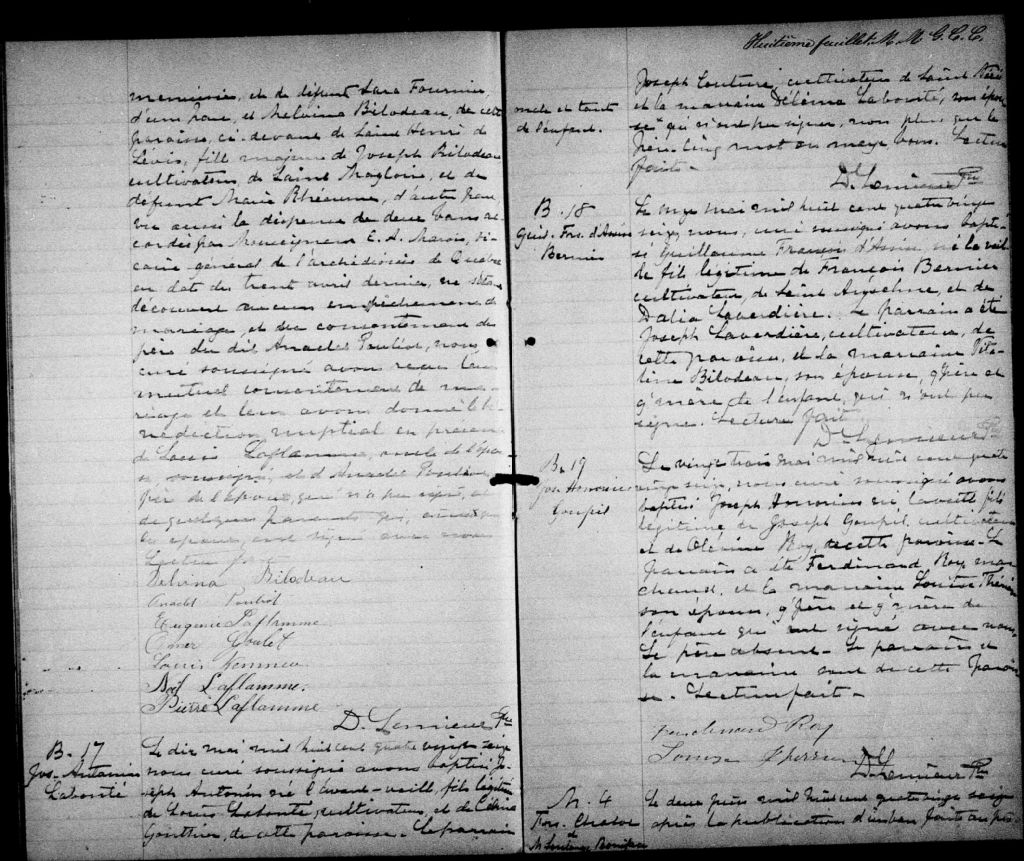 menuisier, et de défunt Sara Fournier,
d'une part, et Melvina Bilodeau, de cette
paroisse, ci-devant de Saint Henri de
Lévis, fille majeure de Joseph Bilodeau
cultivateur, de Saint Magloire, et de
défunt Marie Rhéaume, d'autre part,
vu aussi la dispense de deux bans ac-
cordés par Monseigneur C. A. Marois, vi-
caire général de l'archidiocèse de Québec
en date du trent avril dernier, ne s'étant
découvert aucun empêchement de
mariage, et du consentement du
père du dit Anaclet Pouliot, nous
curé soussigné avons reçu leur
mutuel consentement de ma-
riage et leur avons donné la bé-
nédiction nuptial en présence
de Louis Laflamme, oncle de l'épou-
soussigné, et d'Anaclet Pouliot
père de l'époux, qui n'a pu signer, et
de quelques parents qui,
les époux, ont signé avec nous
Lecture faite
Delvina Bilodeau
Anaclet Pouliot
Eugenie Laflamme
Omer Goulet
Louis
Laflamme.
Pierre Laflamme
D. Lemieux Ptre
B. 17
Jos. Antonin
Labonté
Le dix mai mil huit cent quatre vingt seize
nous curé soussigné avons baptisé Jo-
seph Antonin né l'avant-veille, fils légitime
de Louis Labonté, cultivateur, et de Célina
Gonthier, de cette paroisse. Le parrain
Huitième feuillet. M. M. G. C. C.
oncle et tante
de l'enfant.
Joseph Couture, cultivateur de Saint
et la marraine Déléma Labonté, son épou-
se qui n'ont pu signer, non plus que le
père. Cinq mot en marge bons. Lecture
faite.
D. Lemieux Ptre
B. 18
Guil. Frs. d'Assise
Bernier
Le onze mai mil huit cent quatre vingt
seize, nous, curé soussigné avons bapti-
sé Guillaume François d'Assise, né la veil-
le fils légitime de François Bernier
cultivateur, de Saint Anselme, et de
Dalia Laverdière. Le parrain a été
Joseph Laverdière, cultivateur, de
cette paroisse, et la marraine Vita-
line Bilodeau, son épouse, g'père et
g'mère de l'enfant, qui n'ont pu
signer. Lecture faite
D. Lemieux Ptre
B. 19
Jos. Honorius
Goupil
Le vingt trois mai mil huit cent quatre
vingt seize, nous curé soussigné avons
baptisé Joseph Honorius né la veille fils
légitime de Joseph Goupil, cultivateur
et de Olérine Roy, de cette paroisse. Le
parrain a été Ferdinand Roy, mar-
chand, et la marraine Louise Thérien
son épouse, g'père et g'mère de
l'enfant qui ont signé avec nous.
Le père absent. Le parrain et
la marraine sont de cette parois-
se. Lecture faite.
Ferdinand Roy
Louise Therrien
D. Lemieux Ptre
M. 4
Frs.
et
M
Le deux juin mil huit cent quatre vingt seize
après la publication d'un ban faite au prô-